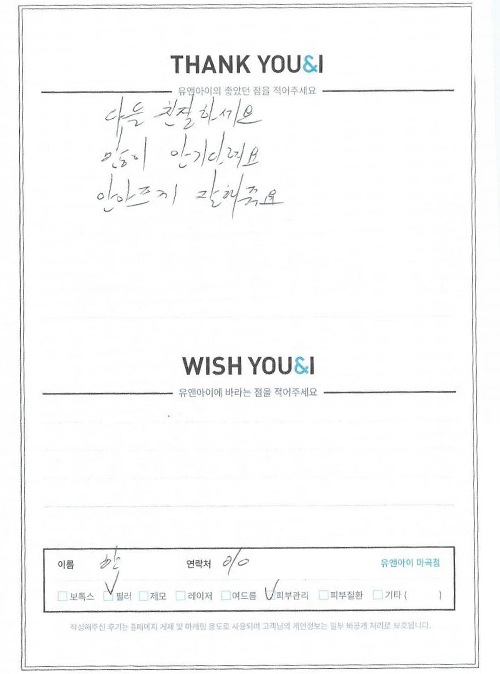 THANK YOU&I
유앤아이의 좋았던 점을 적어주세요
다들 친절하세요
많이 안기다려요
안아프게 잘해줘요
WISH YOU&I
유앤아이에 바라는 점을 적어주세요
이름 한 연락처 010 유앤아이 마곡점
보톡스 필러 제모 레이저 여드름 피부관리 피부질환 기타 ( )
작성해주신 후기는 홈페이지 게재 및 마케팅 용도로 사용되며 고객님의 개인정보는 일부 비공개 처리로 보호됩니다.